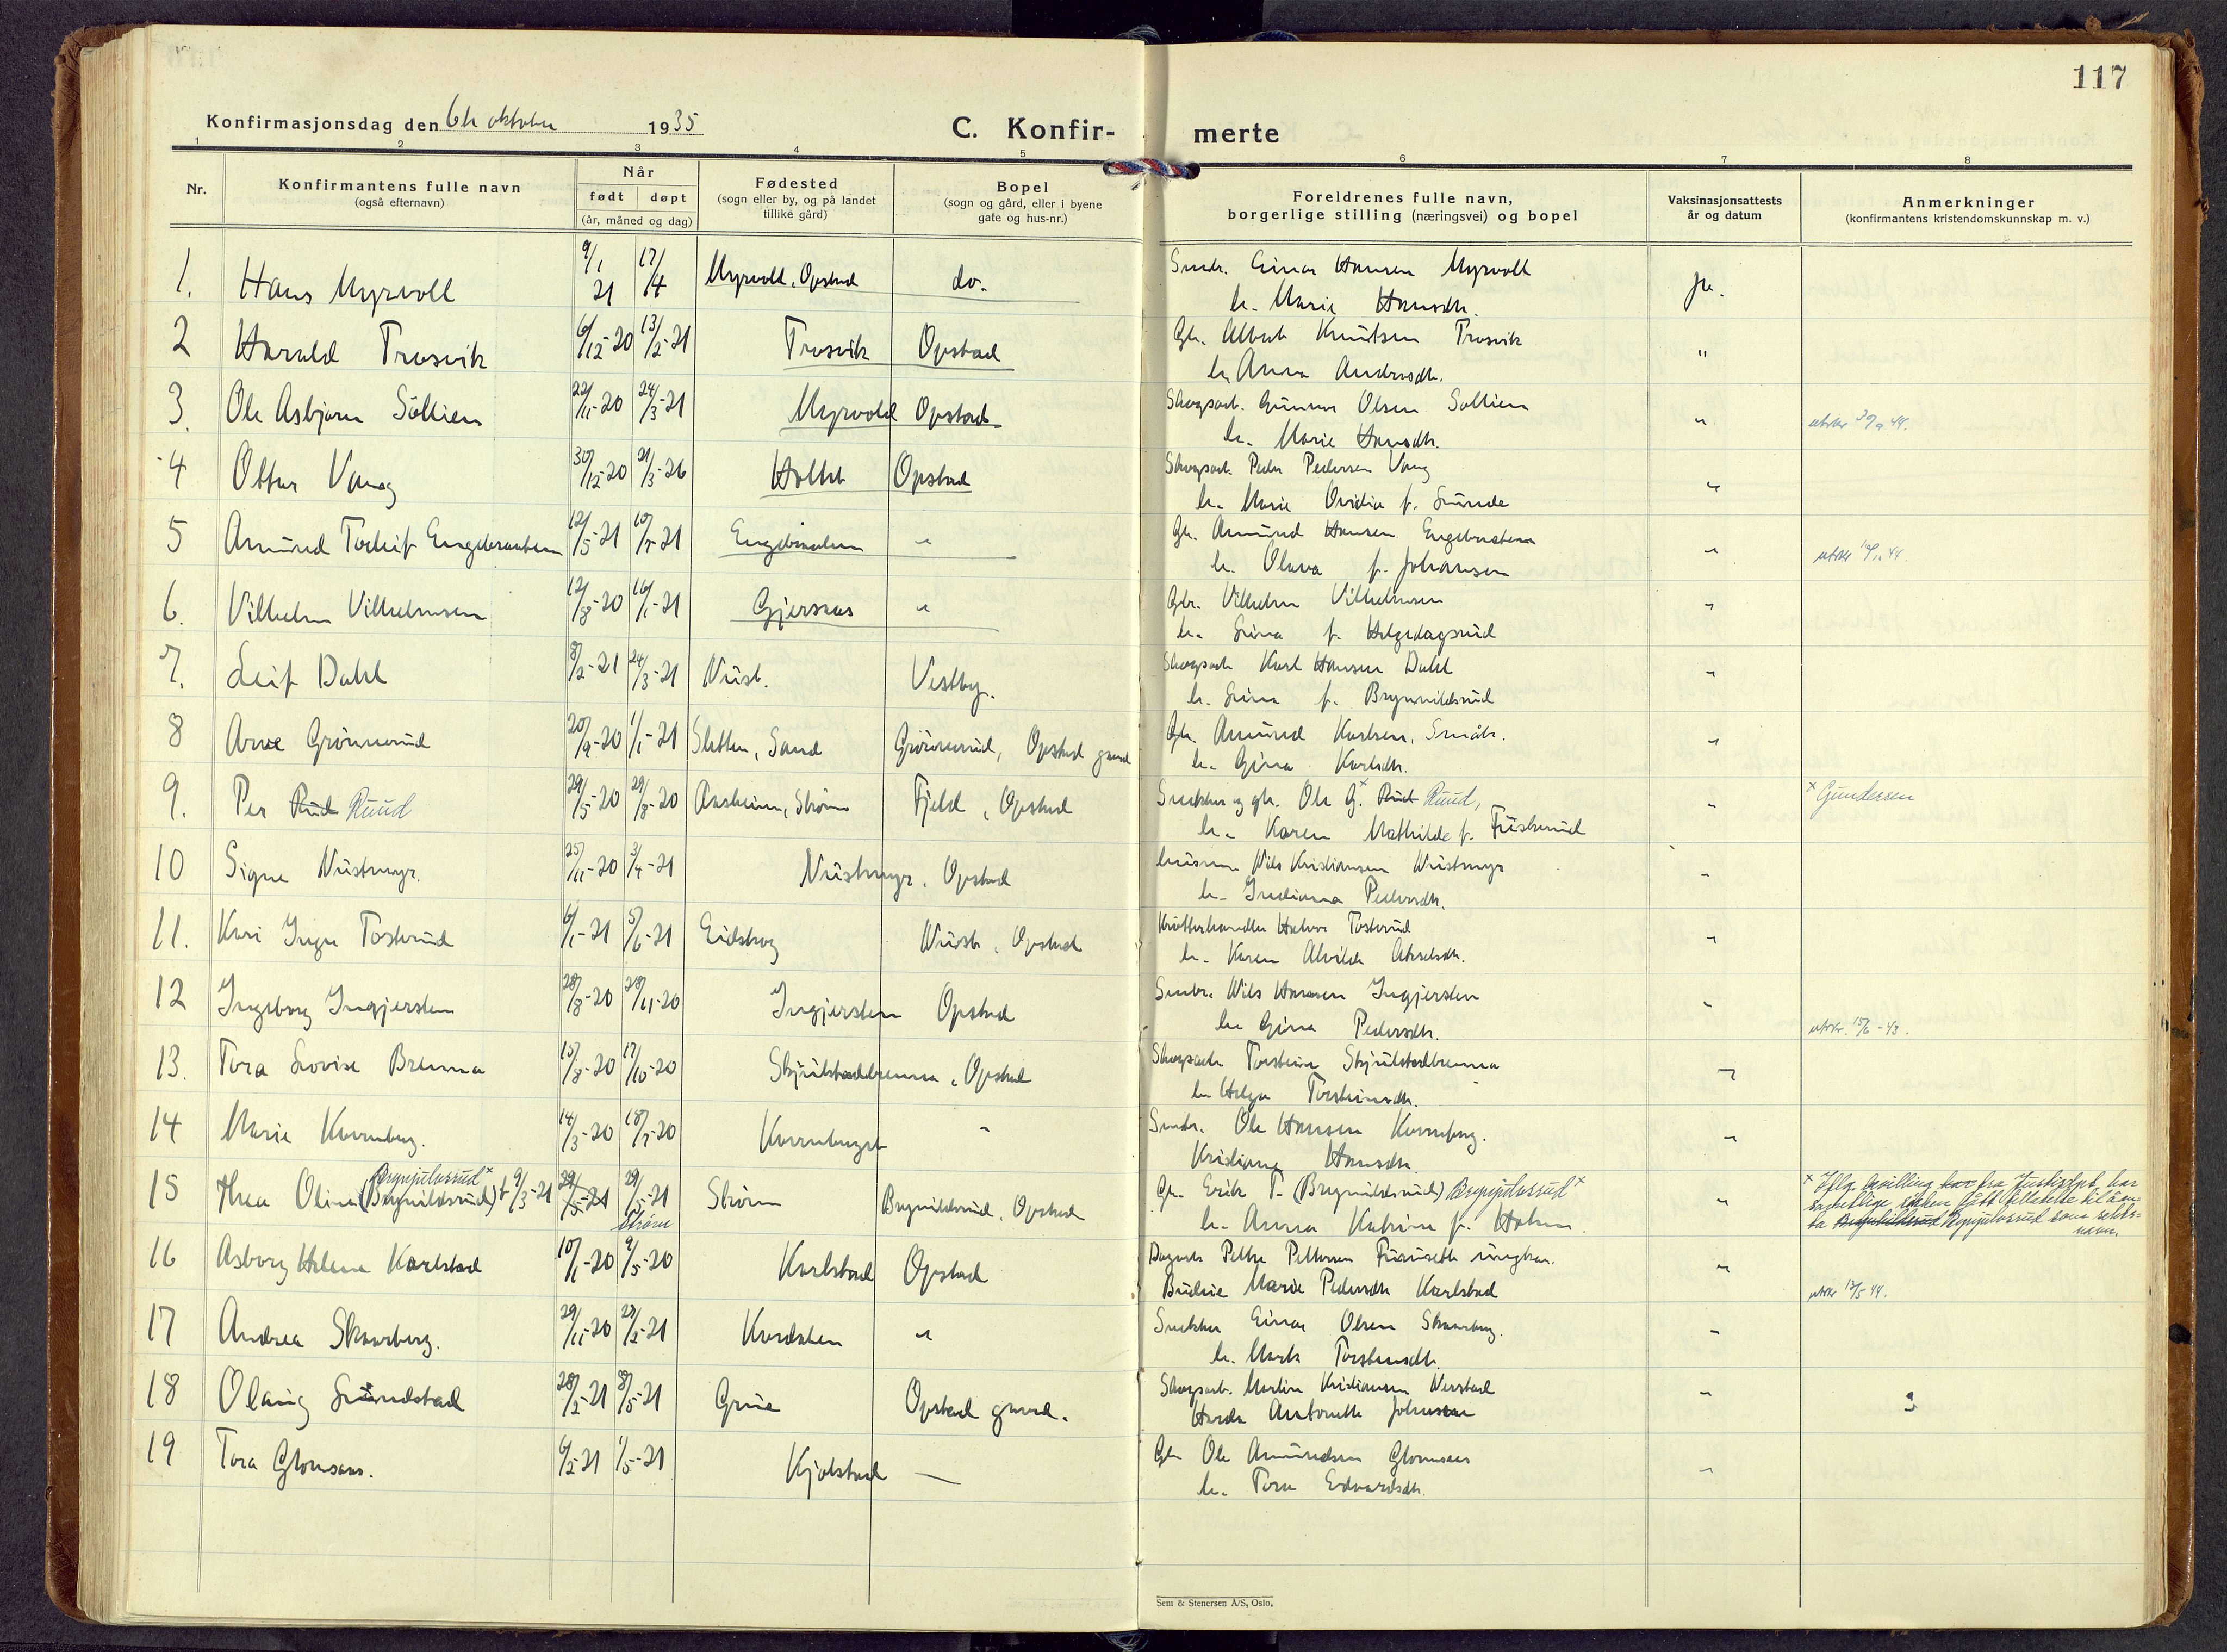 117
Konfirmasjonsdag den 6te oktober 1935
C. Konfir-
merte
1 2 3 4 5 6 7 8
Nr.
Konfirmantens fulle navn
(også efternavn)
Når
født døpt
(år, måned og dag)
Fødested
(sogn eller by, og på landet
tillike gård)
Bopel
(sogn og gård, eller i byene
gate og hus-nr.)
Foreldrenes fulle navn,
borgerlige stilling (næringsvei) og bopel
Vaksinasjonsattests
år og datum
Anmerkninger
(konfirmantens kristendomskunnskap m. v.)
1. Hans Myrvoll 9/1 21 17/4 Myrvoll, Opstad do. Einar Hansen Myrvoll ja.
h. Marie Hansdtr.
2 Harald Trosvik 6/12-20 13/2-21 Trosvik Opstad Gbr. Albert Knutsen Trosvik "
h. Anna Andersdtr.
3. Ole Asbjørn Söllien 22/11-20 24/3-21 Myrvold Opstad Skogsarb. Gunnar Olsen Sollien " utskr 30/9 44.
h. Marie Hansdtr.
4 Ottar Vang 30/12-20 21/3-26 Holtet Opstad Skogsarb. Peder Pedersen Vang "
h. Marie Ovidia f. Lunde
5 Amund Torleif Engebraaten 12/5-21 10/7-21 Engebraaten " Gbr. Amund Hansen Engebraaten "
h. Olava f. Johansen
6. Vilhelm Vilhelmsen 12/8-20 16/1-21 Gjersaas " Gbr. Vilhelm Vilhelmsen "
h. Lina f. Helgedagsrud
7. Leif Dahl 8/2-21 24/3-21 Nust. Vestby. Skogsarb Karl Hansen Dahl "
h. Lina f. Brynnildsrud
8 Arne Grønnerud 20/9-20 1/1-21 Sletten, Sand Grönnerud, Opstad grend Gbr. Amund Karlsen, Småbr. "
h. Gina Karlsdtr.
9. Per Rud Ruud 29/5-20 29/8-20 Aasheim, Strøm Fjeld, Opstad Snekker og gbr. Ole G.x Rud Ruud, " x Gundersen
h. Karen Mathilde f. Fuskerud
10 Signe Nustmyr. 25/11-20 3/4-21 Nustmyr, Opstad Nils Kristiansen Nustmyr "
h. Indiana Pedersdtr.
11. Kari Inga Tosterud 6/1-21 5/6-21 Eidskog Nust, Opstad Krøtterhandler Halvor Tosterud "
h. Karen Alvilde Akselsdtr.
12 Ingeborg Ingjersten 28/8-20 28/11-20 Ingjersten Opstad Småbr. Nils Hansen Ingjersten "
h. Gina Pedersdtr. utskr. 15/6-43.
13. Tora Lovise Brenna 15/8-20 17/10-20 Skjulstadbrenna, Opstad Skogsarb Torstein Skjulstadbrenna "
h. Helga Torsteinsdtr.
14 Marie Kvernberg. 14/3-20 18/7-20 Kvernberget " Småbr. Ole Hansen Kvernberg. "
Kristiane Hansdtr.
Brynjulvsrud x
15 Thea Oline (Brynildsrud) f 9/3-21 29/5-21 29/5-21 Strøm Brynildsrud, Opstad Gbr. Erik T. (Brynildsrud) Brynjulvsrud x " x Iflg. bevilling har fra Justisdept. har
Strøm h. Anna Katrine f. Holmen samtlige søsken fått tillatelse til å an-
ta Brynjulvsrud som slekts=
navn.
16 Asborg Helene Karlstad 10/1-20 9/5-20 Karlstad Opstad Petter Pettersen Furuseth ungkar. "
Budeie Marie Pedersdtr Karlstad utskr 13/5 44.
17 Andrea Skaarberg. 29/11-20 27/2-21 Kordalen " Snekker Einar Olsen Skaarberg. "
h. Marte Torsteinsdtr.
18 Olaug Lundstad 28/2-21 8/5-21 Grue Opstad grend. Skogsarb. Martin Kristiansen "
Antonette Johnsen
19 Tora Glomsaas. 6/2-21 1/5-21 Kjølstad — Gbr Ole Amundsen Glomsaas "
h. Tora Edvardsdtr.
Sem & Stenersen A/S, Oslo.